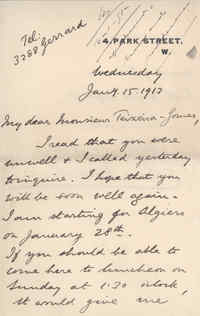 Tel:
3288 Gerrard
4, PARK STREET,
W.
Wednesday
Jany. 15. 1913
My dear Monsieur Teixeira-Gomes,
I read that you were
unwell & I called yesterday
to inquire. I hope that you
will be soon well again.
I am starting for Algiers
on January 28th.
If you should be able to
come here to luncheon on
Sunday at 1.30 o'clock,
it would give me